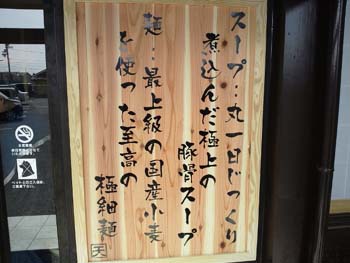 スープ：丸一日じっくり
煮込んだ極上の
豚骨スープ
麺：最上級の国産小麦
を使った至高の
極細麺
天